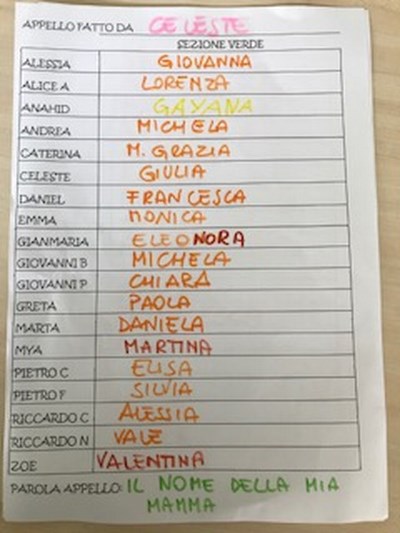 APPELLO FATTO DA CELESTE
SEZIONE VERDE
ALESSIA GIOVANNA
ALICE A LORENZA
ANAHID GAYANA
ANDREA MICHELA
CATERINA M. GRAZIA
CELESTE GIULIA
DANIEL FRANCESCA
EMMA MONICA
GIANMARIA ELEONORA
GIOVANNI B MICHELA
GIOVANNI P CHIARA
GRETA PAOLA
MARTA DANIELA
MYA MARTINA
PIETRO C ELISA
PIETRO F SILVIA
RICCARDO C ALESSIA
RICCARDO N VALE
ZOE VALENTINA
PAROLA APPELLO: IL NOME DELLA MIA
MAMMA